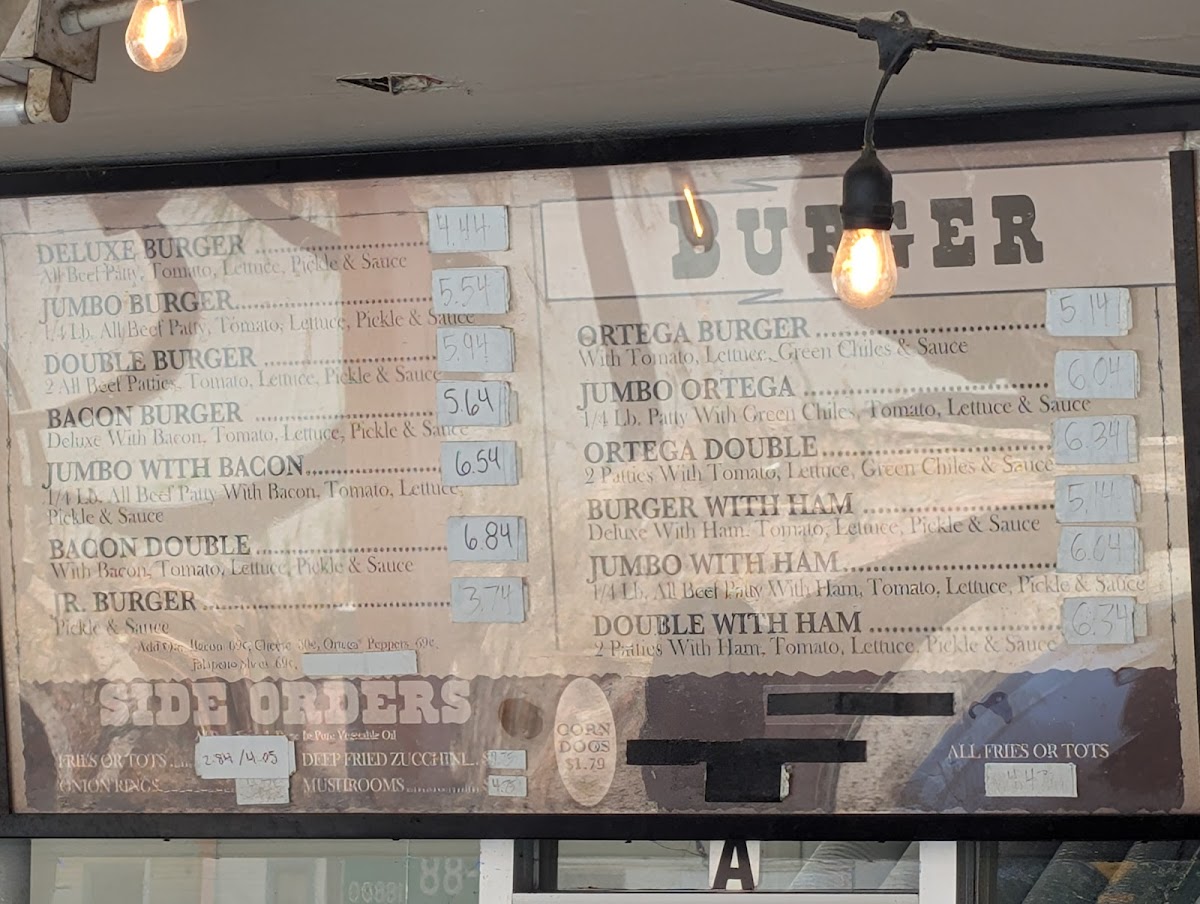 DELUXE BURGER 4.44
All Beef Patty, Tomato, Lettuce, Pickle & Sauce
JUMBO BURGER 5.54
1/4 Lb. All Beef Patty, Tomato, Lettuce, Pickle & Sauce
DOUBLE BURGER 5.94
2 All Beef Patties, Tomato, Lettuce, Pickle & Sauce
BACON BURGER 5.64
Deluxe With Bacon, Tomato, Lettuce, Pickle & Sauce
JUMBO WITH BACON 6.54
1/4 Lb. All Beef Patty With Bacon, Tomato, Lettuce,
Pickle & Sauce
BACON DOUBLE 6.84
With Bacon, Tomato, Lettuce, Pickle & Sauce
JR. BURGER 3.74
Pickle & Sauce
Bacon 69¢, Cheese Ortega Peppers 69¢,
Jalapeno 69¢,
BURGER
ORTEGA BURGER 5.14
With Tomato, Lettuce, Green Chiles & Sauce
JUMBO ORTEGA 6.04
1/4 Lb. Patty With Green Chiles, Tomato, Lettuce & Sauce
ORTEGA DOUBLE 6.34
2 Patties With Tomato, Lettuce, Green Chiles & Sauce
BURGER WITH HAM 5.14
Deluxe With Ham, Tomato, Lettuce, Pickle & Sauce
JUMBO WITH HAM 6.04
1/4 Lb. All Beef Patty With Ham, Tomato, Lettuce, Pickle & Sauce
DOUBLE WITH HAM 6.34
2 Patties With Ham, Tomato, Lettuce, Pickle & Sauce
SIDE ORDERS
In Pure Vegetable Oil
FRIES OR TOTS 2.84/4.05
ONION RINGS
DEEP FRIED ZUCCHINI
MUSHROOMS 4.75
CORN
DOGS
$1.79
ALL FRIES OR TOTS
4.43
A